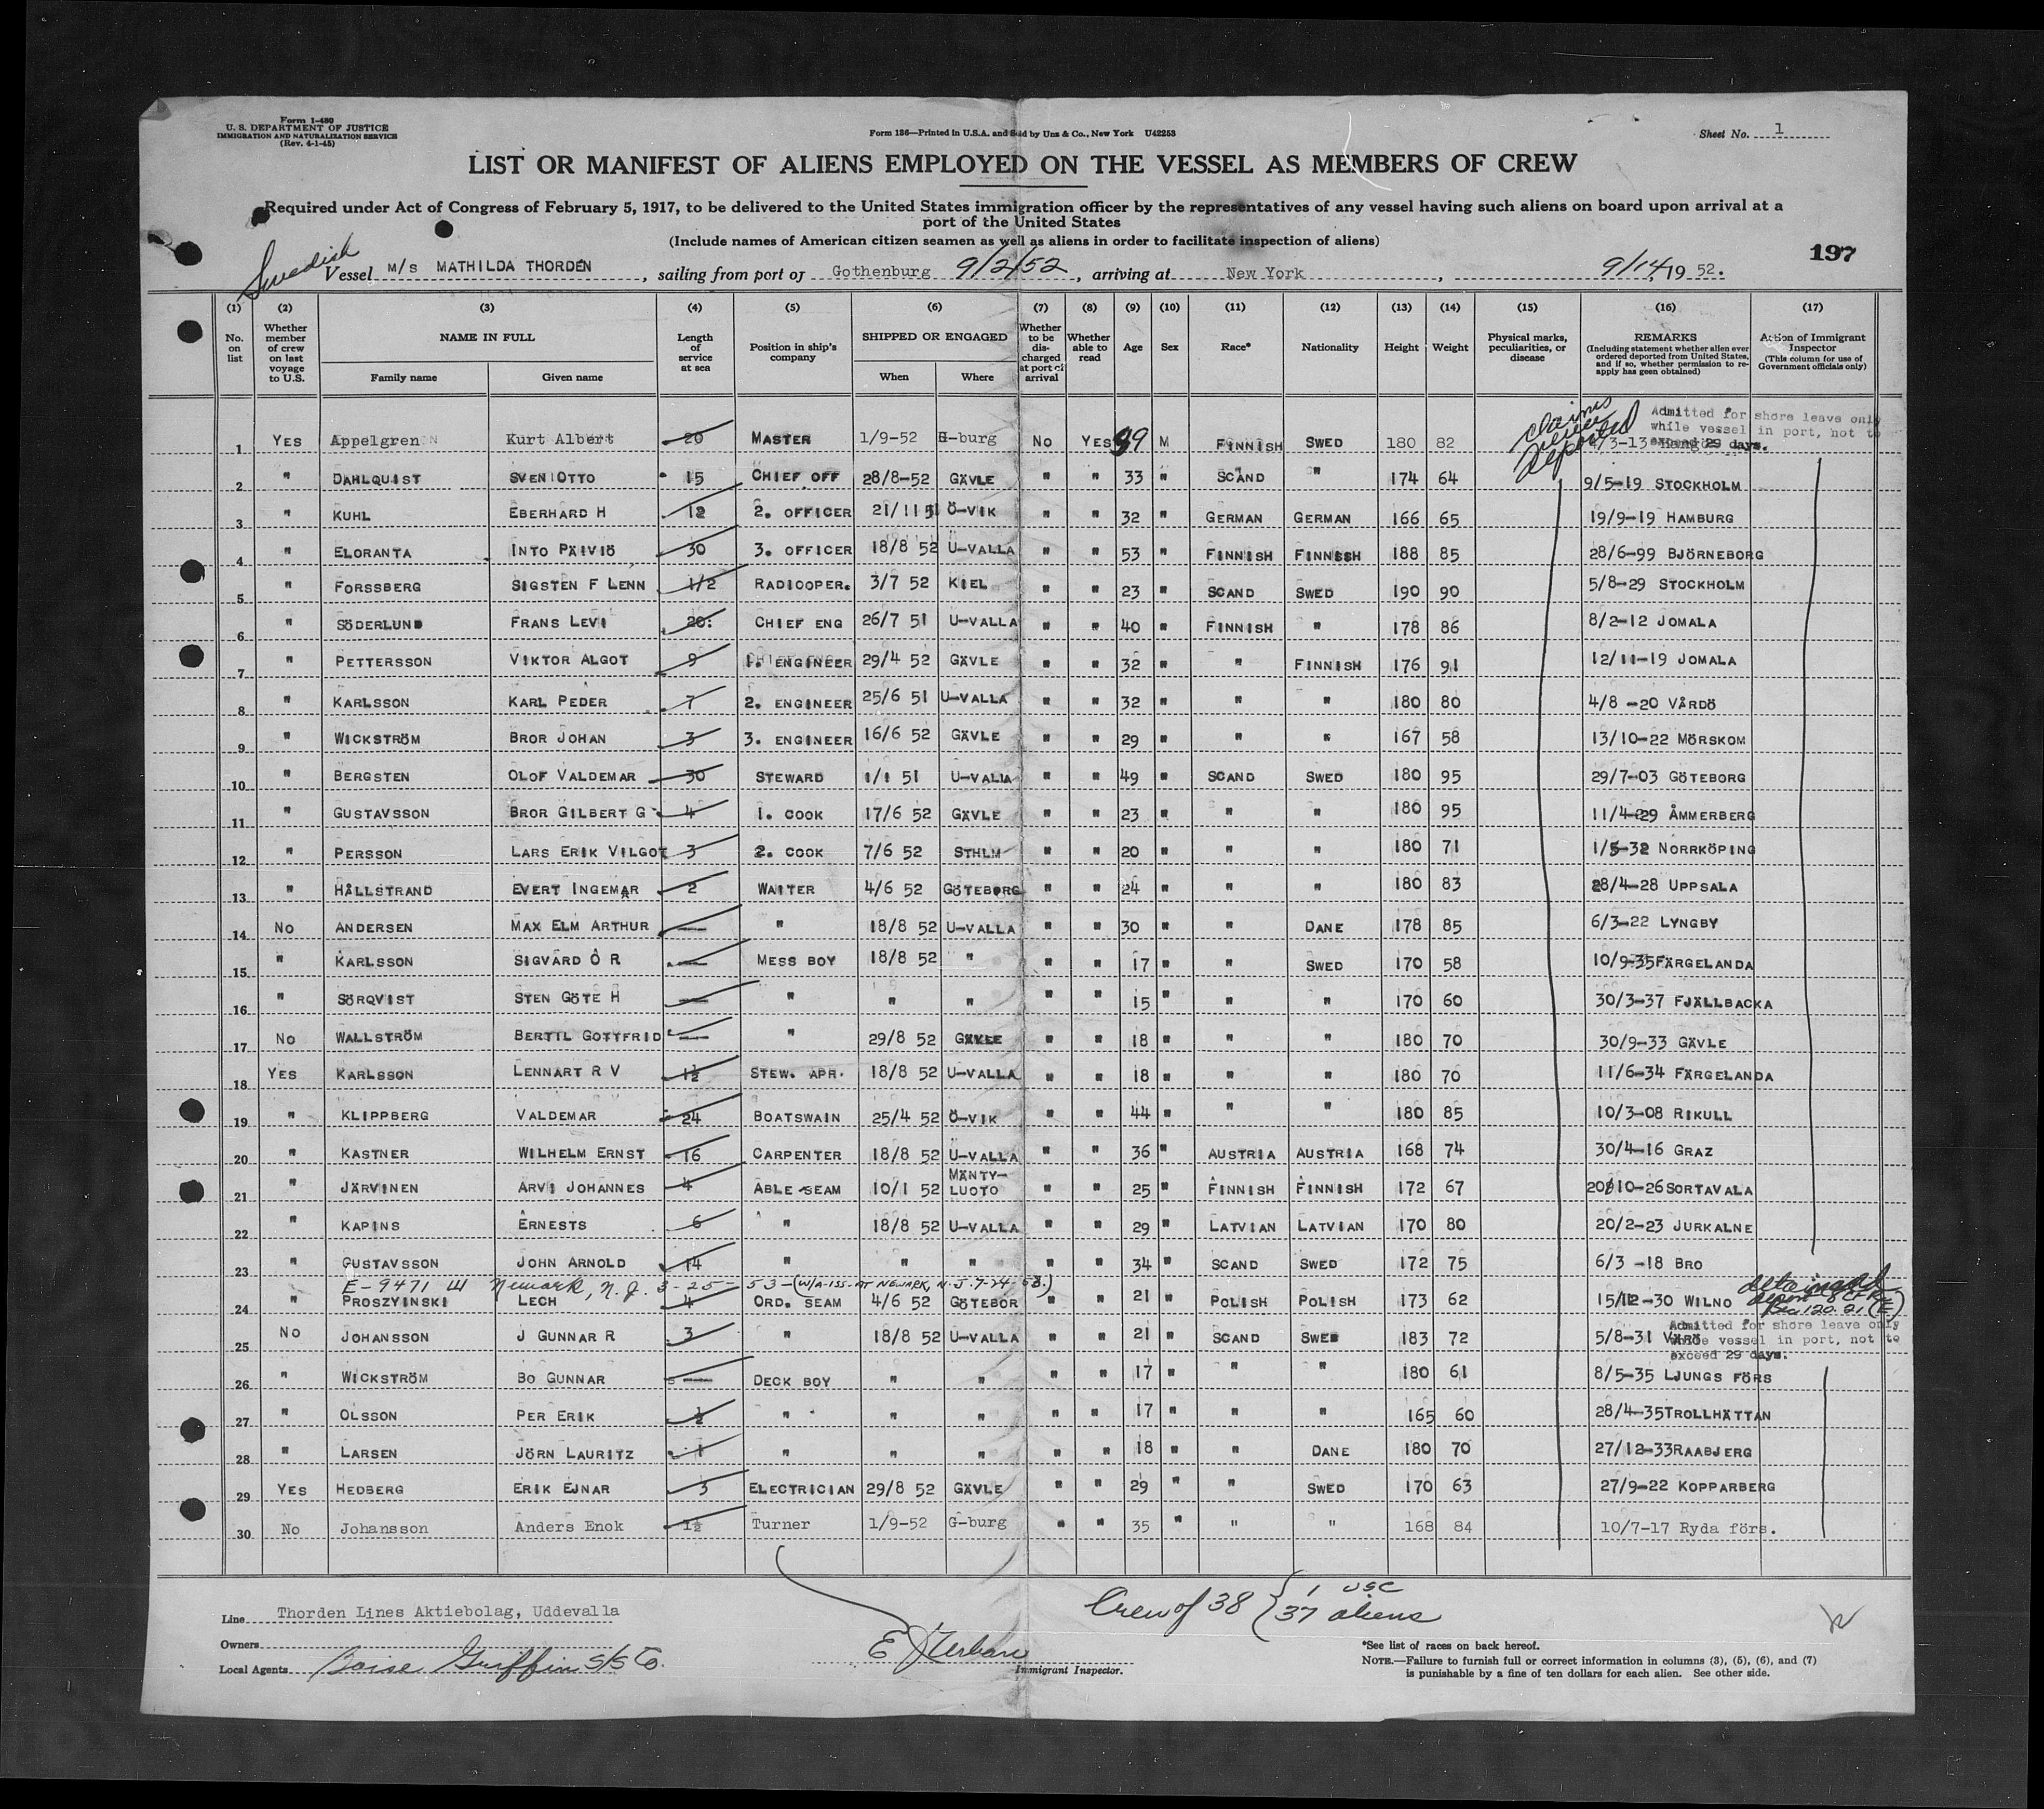 Form I-480
U. S. DEPARTMENT OF JUSTICE
IMMIGRATION AND NATURALIZATION SERVICE
(Rev. 4-1-45)
Form 186—Printed in U.S.A. and Sold by Unz & Co., New York U42253
Sheet No. 1
LIST OR MANIFEST OF ALIENS EMPLOYED ON THE VESSEL AS MEMBERS OF CREW
Required under Act of Congress of February 5, 1917, to be delivered to the United States immigration officer by the representatives of any vessel having such aliens on board upon arrival at a
port of the United States
(Include names of American citizen seamen as well as aliens in order to facilitate inspection of aliens)
197
Swedish Vessel M/S MATHILDA THORDEN, sailing from port of Gothenburg 9/2/52, arriving at New York, 9/14, 19 52.
(1) (2) (3) (4) (5) (6) (7) (8) (9) (10) (11) (12) (13) (14) (15) (16) (17)
No. on list
Whether member of crew on last voyage to U.S.
NAME IN FULL
Family name
Given name
Length of service at sea
Position in ship's company
SHIPPED OR ENGAGED
When
Where
Whether to be discharged at port of arrival
Whether able to read
Age
Sex
Race*
Nationality
Height
Weight
Physical marks, peculiarities, or disease
REMARKS
(Including statement whether alien ever ordered deported from United States, and if so, whether permission to re-apply has geen obtained)
Action of Immigrant Inspector
(This column for use of Government officials only)
claims never deported
Admitted for shore leave only
while vessel in port, not to
exceed 29 days.
1 YES Appelgren Kurt Albert 20 MASTER 1/9-52 G-burg No YES 39 M FINNISH SWED 180 82 /3-13 Hangö
2 " DAHLQUIST SVEN OTTO 15 CHIEF OFF 28/8-52 GÄVLE " " 33 " SCAND " 174 64 9/5-19 STOCKHOLM
3 " KUHL EBERHARD H 12 2. OFFICER 21/11 51 Ö-VIK " " 32 " GERMAN GERMAN 166 65 19/9-19 HAMBURG
4 " ELORANTA INTO PÄIVIÖ 30 3. OFFICER 18/8 52 U-VALLA " " 53 " FINNISH FINNISH 188 85 28/6-99 BJÖRNEBORG
5 " FORSSBERG SIGSTEN F LENN 1/2 RADIOOPER. 3/7 52 KIEL " " 23 " SCAND SWED 190 90 5/8-29 STOCKHOLM
6 " SÖDERLUND FRANS LEVI 20 CHIEF ENG 26/7 51 U-VALLA " " 40 " FINNISH " 178 86 8/2-12 JOMALA
7 " PETTERSSON VIKTOR ALGOT 9 1. ENGINEER 29/4 52 GÄVLE " " 32 " " FINNISH 176 91 12/11-19 JOMALA
8 " KARLSSON KARL PEDER 7 2. ENGINEER 25/6 51 U-VALLA " " 32 " " " 180 80 4/8 -20 VÅRDÖ
9 " WICKSTRÖM BROR JOHAN 3 3. ENGINEER 16/6 52 GÄVLE " " 29 " " " 167 58 13/10-22 MÖRSKOM
10 " BERGSTEN OLOF VALDEMAR 30 STEWARD 1/1 51 U-VALLA " " 49 " SCAND SWED 180 95 29/7-03 GÖTEBORG
11 " GUSTAVSSON BROR GILBERT G 4 1. COOK 17/6 52 GÄVLE " " 23 " " " 180 95 11/4-29 ÅMMERBERG
12 " PERSSON LARS ERIK VILGOT 3 2. COOK 7/6 52 STHLM " " 20 " " " 180 71 1/5-32 NORRKÖPING
13 " HÅLLSTRAND EVERT INGEMAR 2 WAITER 4/6 52 GÖTEBORG " " 24 " " " 180 83 28/4-28 UPPSALA
14 No ANDERSEN MAX ELM ARTHUR — " 18/8 52 U-VALLA " " 30 " " DANE 178 85 6/3-22 LYNGBY
15 " KARLSSON SIGVARD O R — MESS BOY 18/8 52 " " " 17 " " SWED 170 58 10/9-35 FÄRGELANDA
16 " SÖRQVIST STEN GÖTE H — " " " " " 15 " " " 170 60 30/3-37 FJÄLLBACKA
17 No WALLSTRÖM BERTIL GOTTFRID — " 29/8 52 GÄVLE " " 18 " " " 180 70 30/9-33 GÄVLE
18 YES KARLSSON LENNART R V 1½ STEW. APR. 18/8 52 U-VALLA " " 18 " " " 180 70 11/6-34 FÄRGELANDA
19 " KLIPPBERG VALDEMAR 24 BOATSWAIN 25/4 52 Ö-VIK " " 44 " " " 180 85 10/3-08 RIKULL
20 " KASTNER WILHELM ERNST 16 CARPENTER 18/8 52 U-VALLA " " 36 " AUSTRIA AUSTRIA 168 74 30/4-16 GRAZ
21 " JÄRVINEN ARVI JOHANNES 4 ABLE-SEAM 10/1 52 MÄNTY-LUOTO " " 25 " FINNISH FINNISH 172 67 20/10-26 SORTAVALA
22 " KAPINS ERNESTS 6 " 18/8 52 U-VALLA " " 29 " LATVIAN LATVIAN 170 80 20/2-23 JURKALNE
23 " GUSTAVSSON JOHN ARNOLD 14 " " " " " 34 " SCAND SWED 172 75 6/3 -18 BRO
E-9471 Newark, N.J. 3-25-53-(W/A-ISS-AT NEWARK, N.J. 7-24-53.)
24 " PROSZYINSKI LECH 4 ORD. SEAM 4/6 52 GÖTEBOR " " 21 " POLISH POLISH 173 62 15/12-30 WILNO detained 8 CFR Sec 120.21 (E)
Admitted for shore leave only
while vessel in port, not to
exceed 29 days.
25 No JOHANSSON J GUNNAR R 3 " 18/8 52 U-VALLA " " 21 " SCAND SWED 183 72 5/8-31 VÄRÖ
26 " WICKSTRÖM BO GUNNAR — DECK BOY " " " " 17 " " " 180 61 8/5-35 LJUNGS FÖRS
27 " OLSSON PER ERIK ½ " " " " " 17 " " " 165 60 28/4-35 TROLLHÄTTAN
28 " LARSEN JÖRN LAURITZ 1 " " " " " 18 " " DANE 180 70 27/12-33 RAABJERG
29 YES HEDBERG ERIK EJNAR 3 ELECTRICIAN 29/8 52 GÄVLE " " 29 " " SWED 170 63 27/9-22 KOPPARBERG
30 No Johansson Anders Enok 1½ Turner 1/9-52 G-burg " " 35 " " " 168 84 10/7-17 Ryda förs.
Crew of 38 { 1 USC
37 aliens
Line Thorden Lines Aktiebolag, Uddevalla
Owners
Local Agents Boise Griffin S/S Co.
Immigrant Inspector.
*See list of races on back hereof.
NOTE.—Failure to furnish full or correct information in columns (3), (5), (6), and (7)
is punishable by a fine of ten dollars for each alien. See other side.